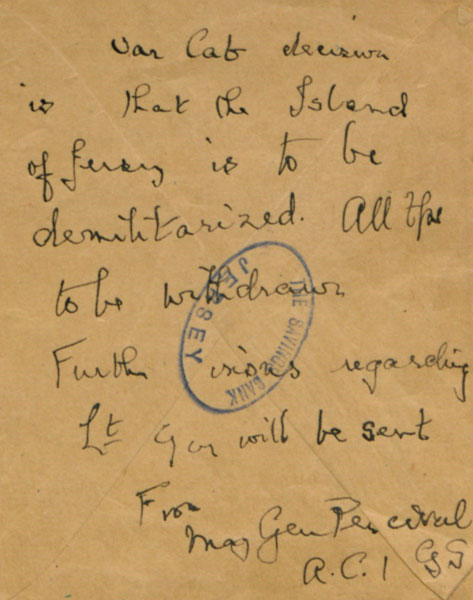 War Cab decision
is that the Island
of Jersey is to be
demilitarized. All tps
to be withdrawn
Further regarding
Lt Gov will be sent
From
Maj Gen Percival
A.C.I.G.S
THE SAVINGS BANK
JERSEY